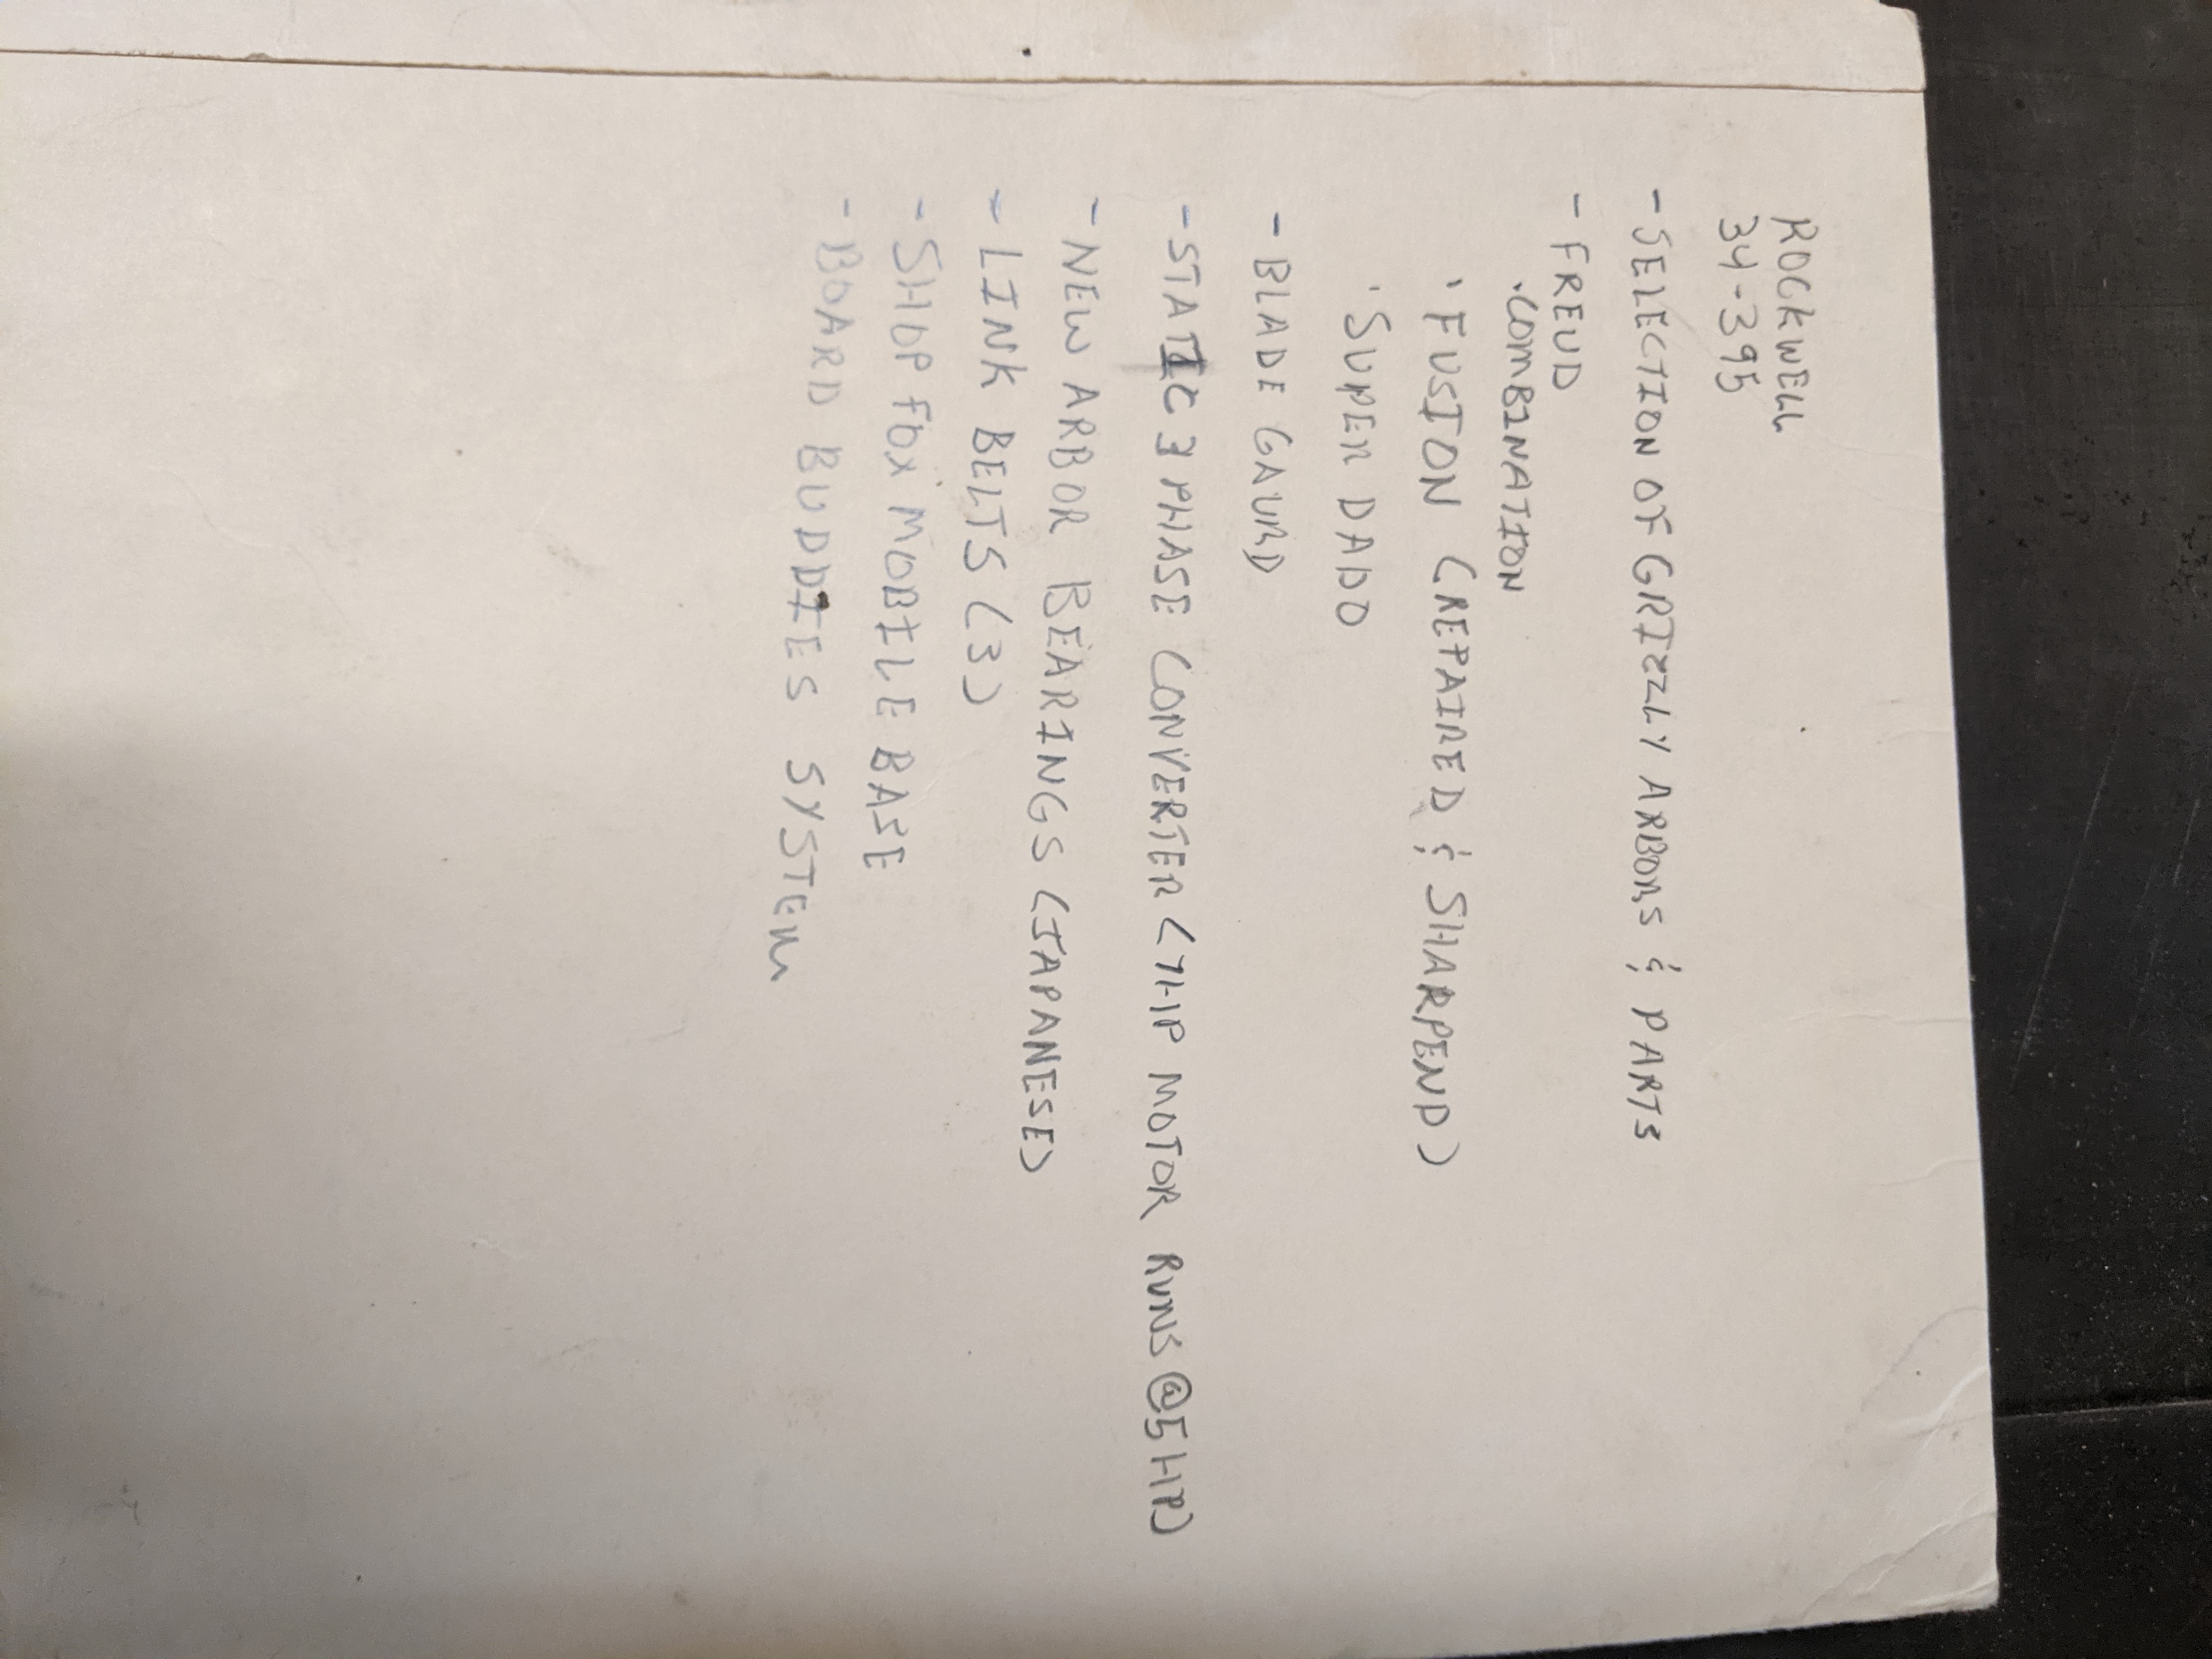 ROCKWELL
34-395
- SELECTION OF GRIZZLY ARBORS & PARTS
- FREUD
· COMBINATION
· FUSION (REPAIRED & SHARPEND)
· SUPER DADO
- BLADE GAURD
- STATIC 3 PHASE CONVERTER (7HP MOTOR RUNS @ 5HP)
- NEW ARBOR BEARINGS (JAPANESE)
- LINK BELTS (3)
- SHOP FOX MOBILE BASE
- BOARD BUDDIES SYSTEM